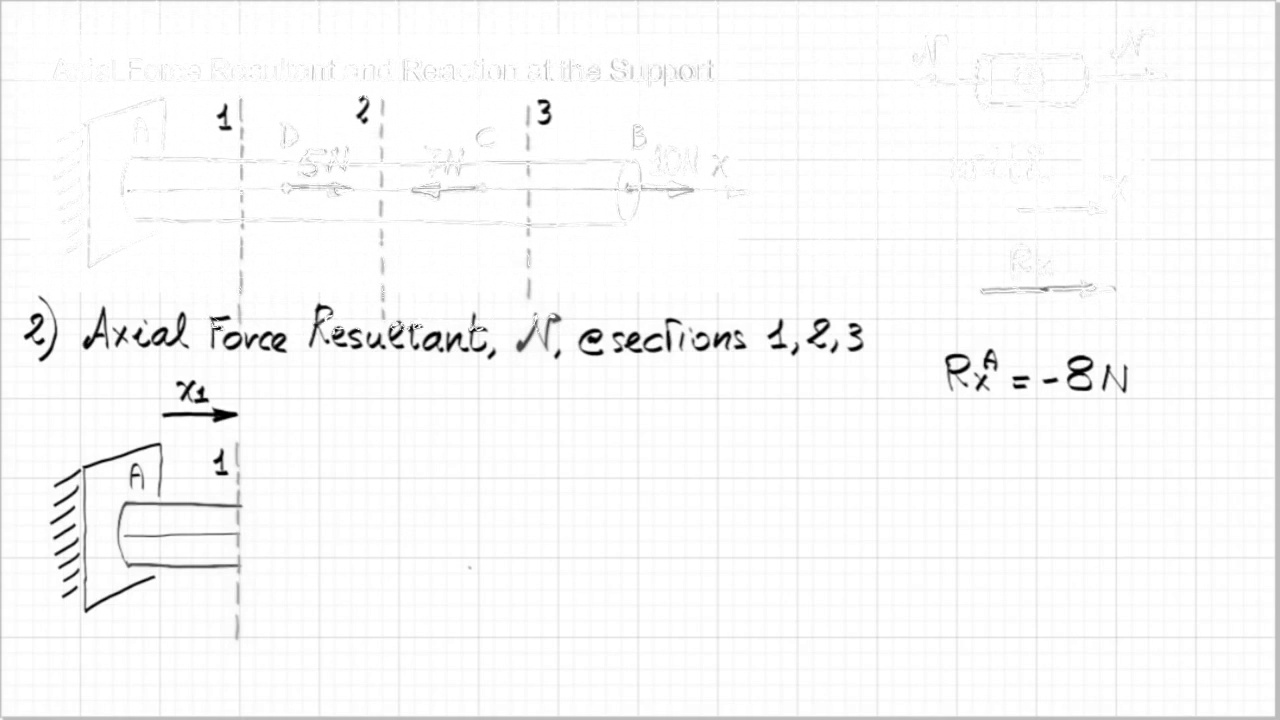 Axial Force Resultant and Reaction at the Support
1 2 3
A D C B
5N 7N 10N x
N N
x
Rx
2) Axial Force Resultant, N, @sections 1,2,3
RxA = -8N
x1
1
A